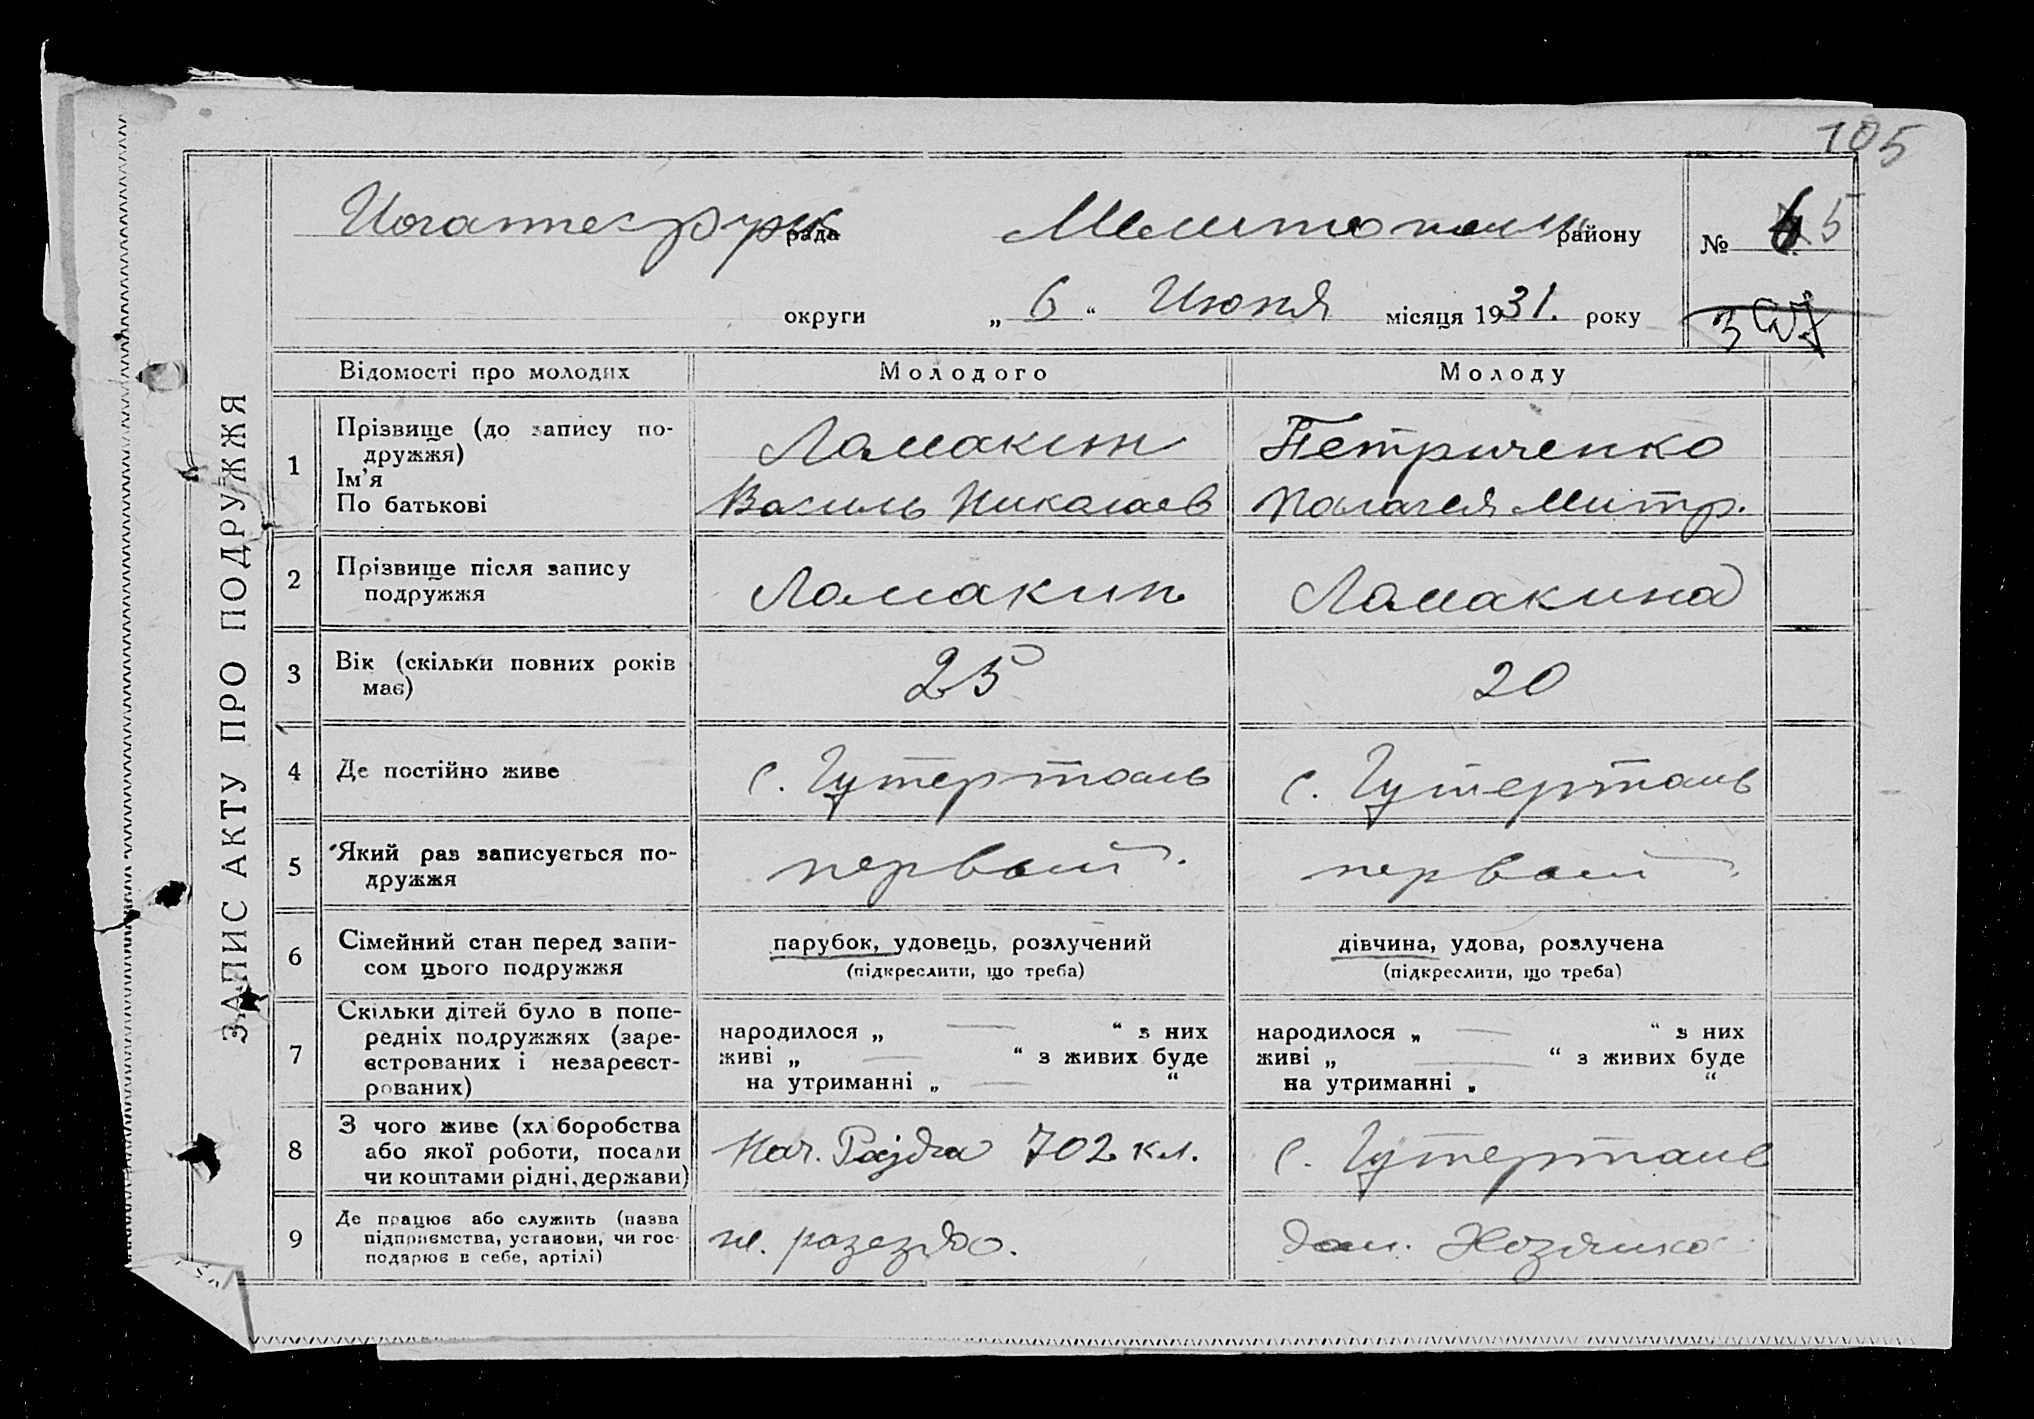 105
рада Мелитополь району № 5
округи „ 6 “ Июня місяця 1931. року
ЗАПИС АКТУ ПРО ПОДРУЖЖЯ
Відомості про молодих Молодого Молоду
1 Прізвище (до запису по-
дружжя)
Ім'я
По батькові
Ламакин
Василь Николаев
Петриченко
Палагея Митр.
2 Прізвище після запису
подружжя
Ламакин
Ламакина
3 Вік (скільки повних років
має)
25
20
4 Де постійно живе
с. Гутерталь
с. Гутерталь
5 Який раз записується по-
дружжя
первый.
первый
6 Сімейний стан перед запи-
сом цього подружжя
парубок, удовець, розлучений
(підкреслити, що треба)
дівчина, удова, розлучена
(підкреслити, що треба)
7 Скільки дітей було в попе-
редніх подружжях (заре-
єстрованих і незареєст-
рованих)
народилося „ — “ з них
живі „ — “ з живих буде
на утриманні „ — “
народилося „ — “ з них
живі „ — “ з живих буде
на утриманні „ “
8 З чого живе (хліборобства
або якої роботи, посади
чи коштами рідні, держави)
Нач. 702 кл.
с. Гутерталь
9 Де працює або служить (назва
підприємства, установи, чи гос-
подарює в себе, артілі)
разезда.
дом. Хозяика